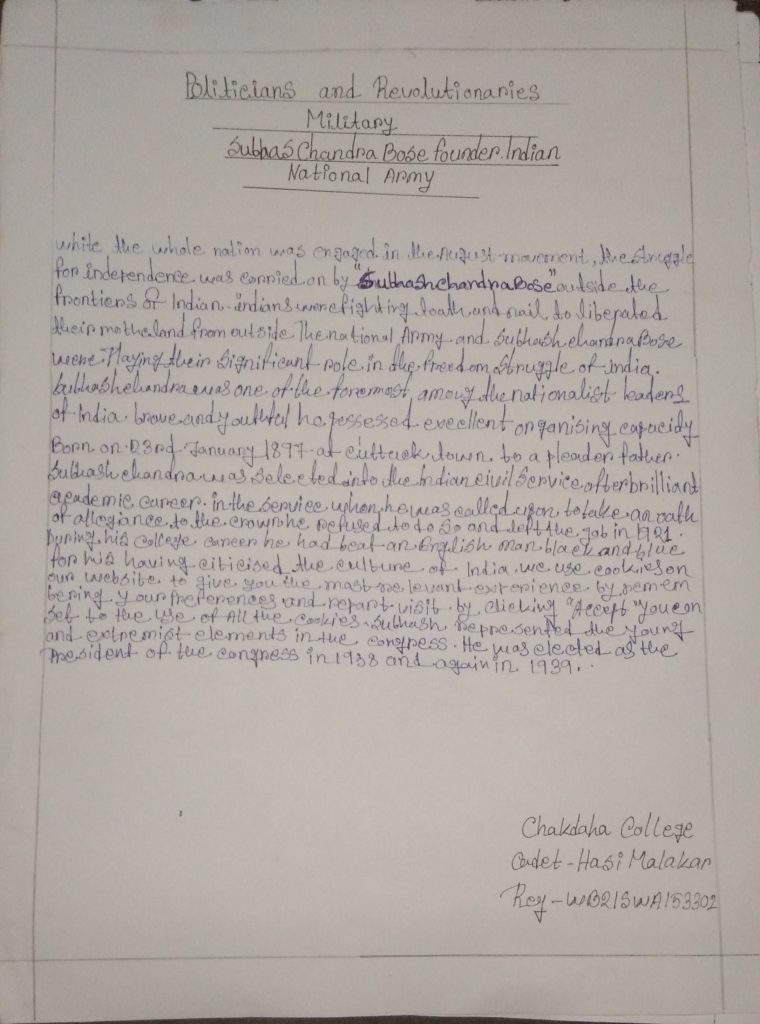 Politicians and Revolutionaries
Military
Subhas Chandra Bose founder. Indian
National Army
while the whole nation was engaged in the August movement, the struggle
for independence was carried on by "Subhashchandra Bose" outside the
frontiers of Indian. indians were fighting tooth and nail to liberated
their motheland from outside The national Army and Subhash chandra Bose
were Playing their significant role in the freedom struggle of india.
Subhashchandra was one of the foremost among the nationalist leaders
of India. brave and youthful he possessed excellent organising capacidy
Born on 23rd January 1897 at cuttuck town. to a pleader father.
Subhash chandra was selected into the Indian civil Service after brilliant
academic career. in the service when he was called upon to take an oath
of allegiance to the crown he refused to do so and left the job in 1921.
During his College career he had beat an English man black and blue
for his having citicised the culture of India. we use cookies on
our website to give you the most relevant experience by remem
bering your Preferences and repart visit. by clicking "Accept" you con
set to the use of All the cookies. Subhash represented the young
and extremist elements in the congress. He was elected as the
President of the congress in 1938 and again in 1939..
Chakdaha College
Cadet - Hasi Malakar
Reg - WB21SWA153302